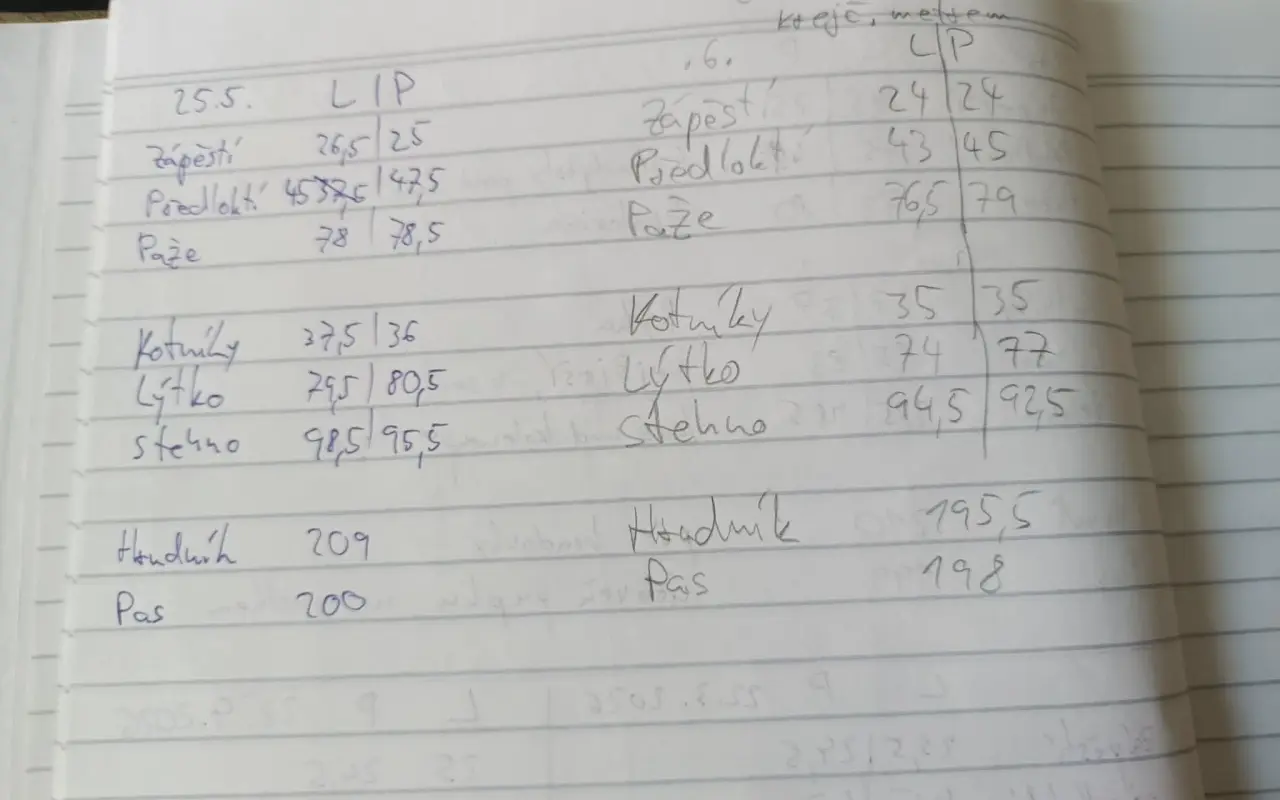 krejč. metrem
25.5. L | P
Zápěstí 26,5 | 25
Předloktí 45 37,5 | 47,5
Paže 78 | 78,5
Kotníky 37,5 | 36
Lýtko 79,5 | 80,5
stehno 98,5 | 95,5
Hrudník 209
Pas 200
.6. L | P
Zápěstí 24 | 24
Předloktí 43 | 45
Paže 76,5 | 79
Kotníky 35 | 35
Lýtko 74 | 77
stehno 94,5 | 92,5
Hrudník 195,5
Pas 198